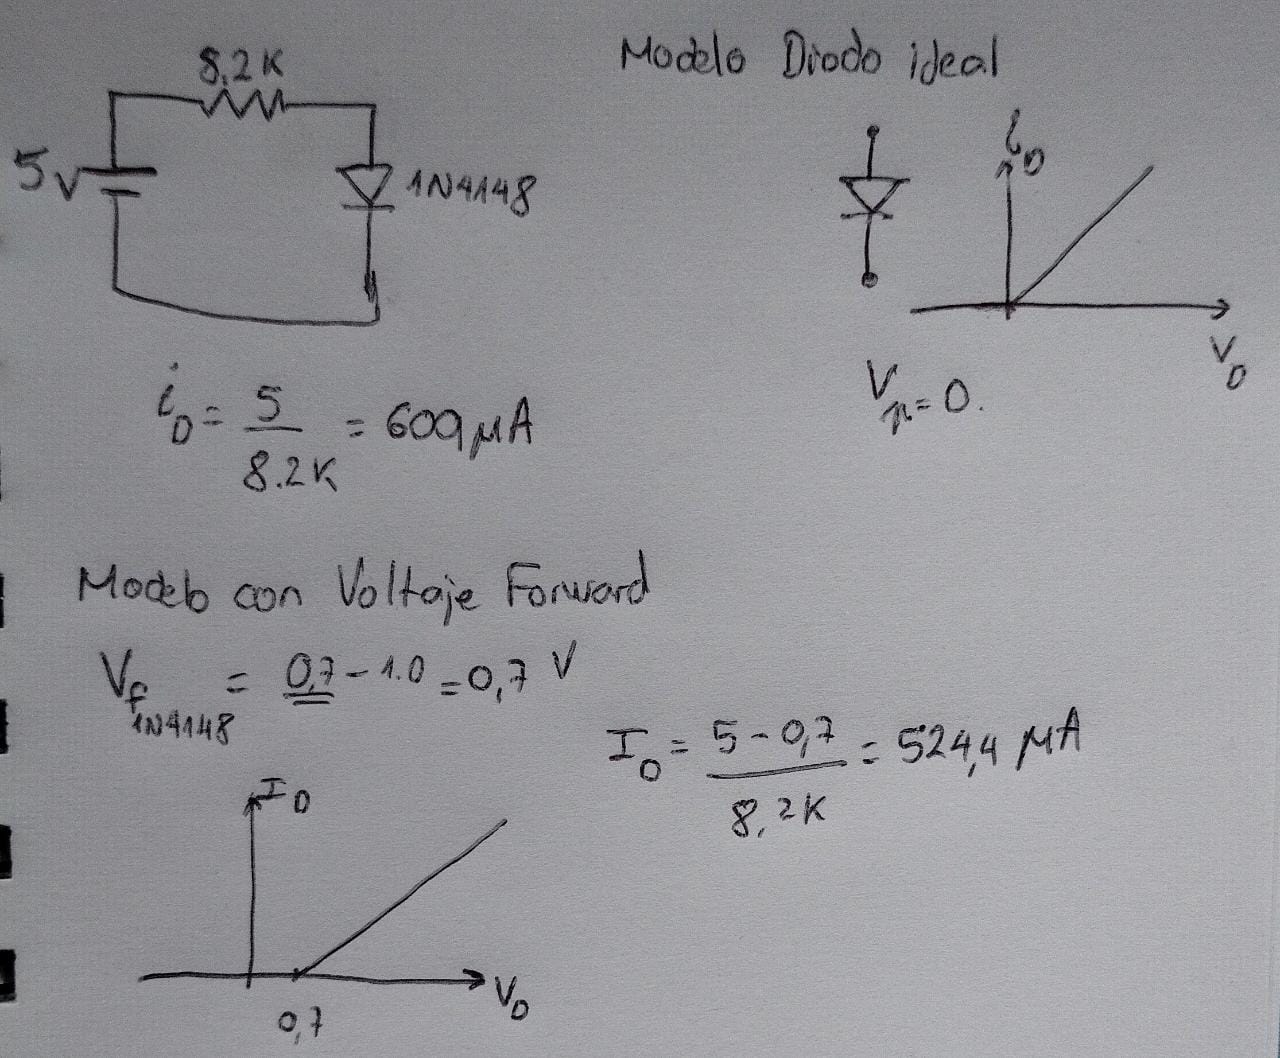 8,2K
5V
1N4148
Modelo Diodo ideal
i_D
V_D
V_n=0.
i_D = 5 / 8.2K = 609 µA
Modelo con Voltaje Forward
V_f 1N4148 = 0,7 - 1.0 = 0,7 V
I_D = 5 - 0,7 / 8,2K = 524,4 µA
I_D
V_D
0,7